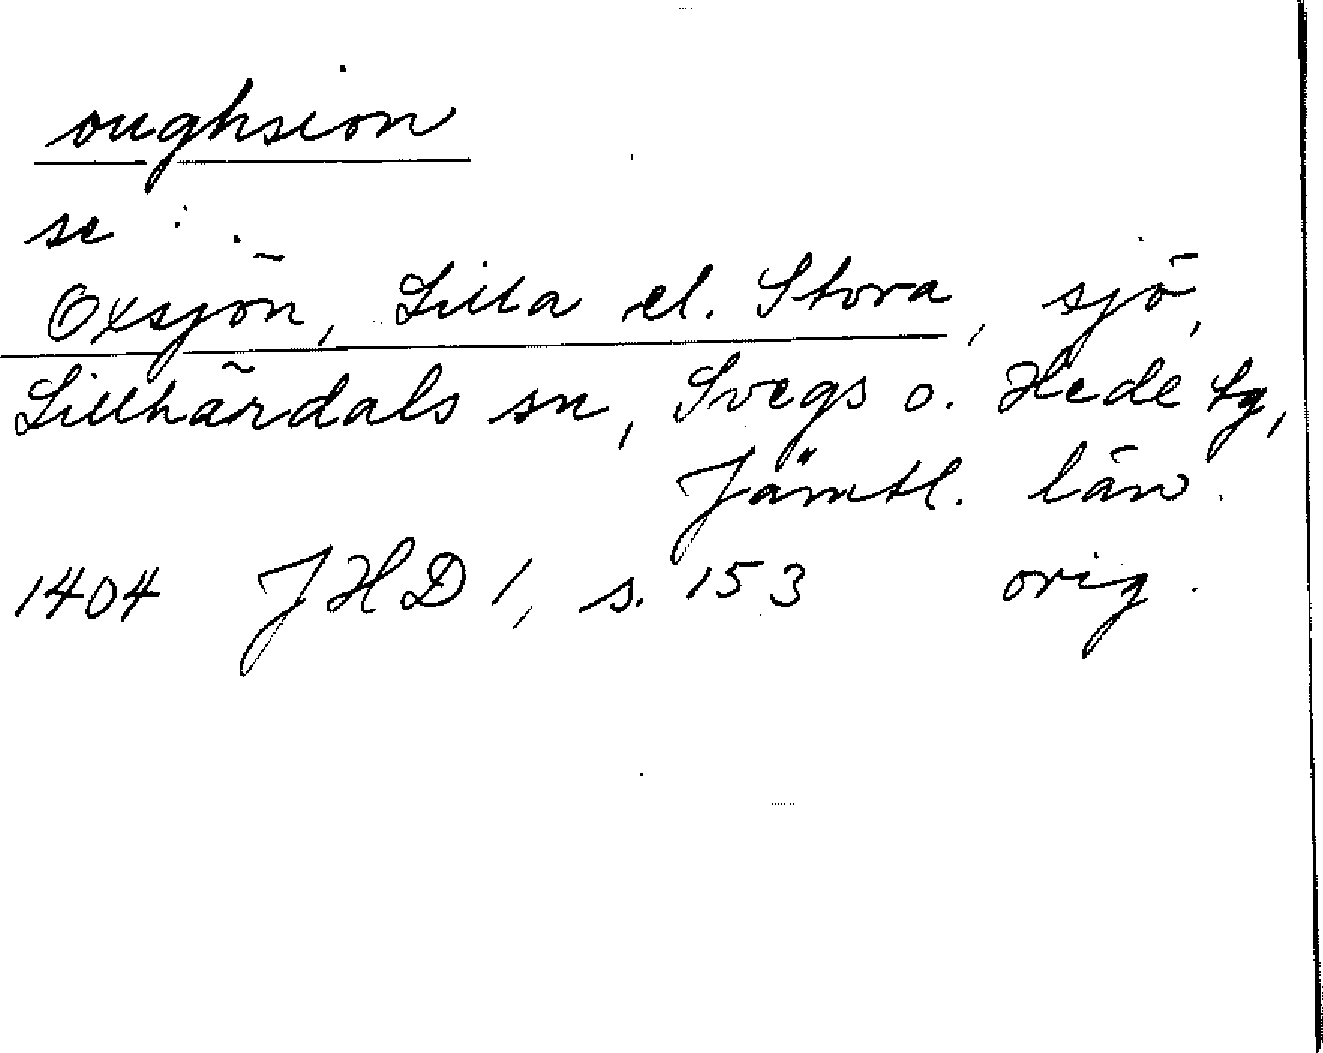 oughsion
se
Oxsjön, Lilla el. Stora, sjö,
Lillhärdals sn, Svegs o. Hede tg,
Jämtl. län.
1404 JHD 1, s. 153 orig.